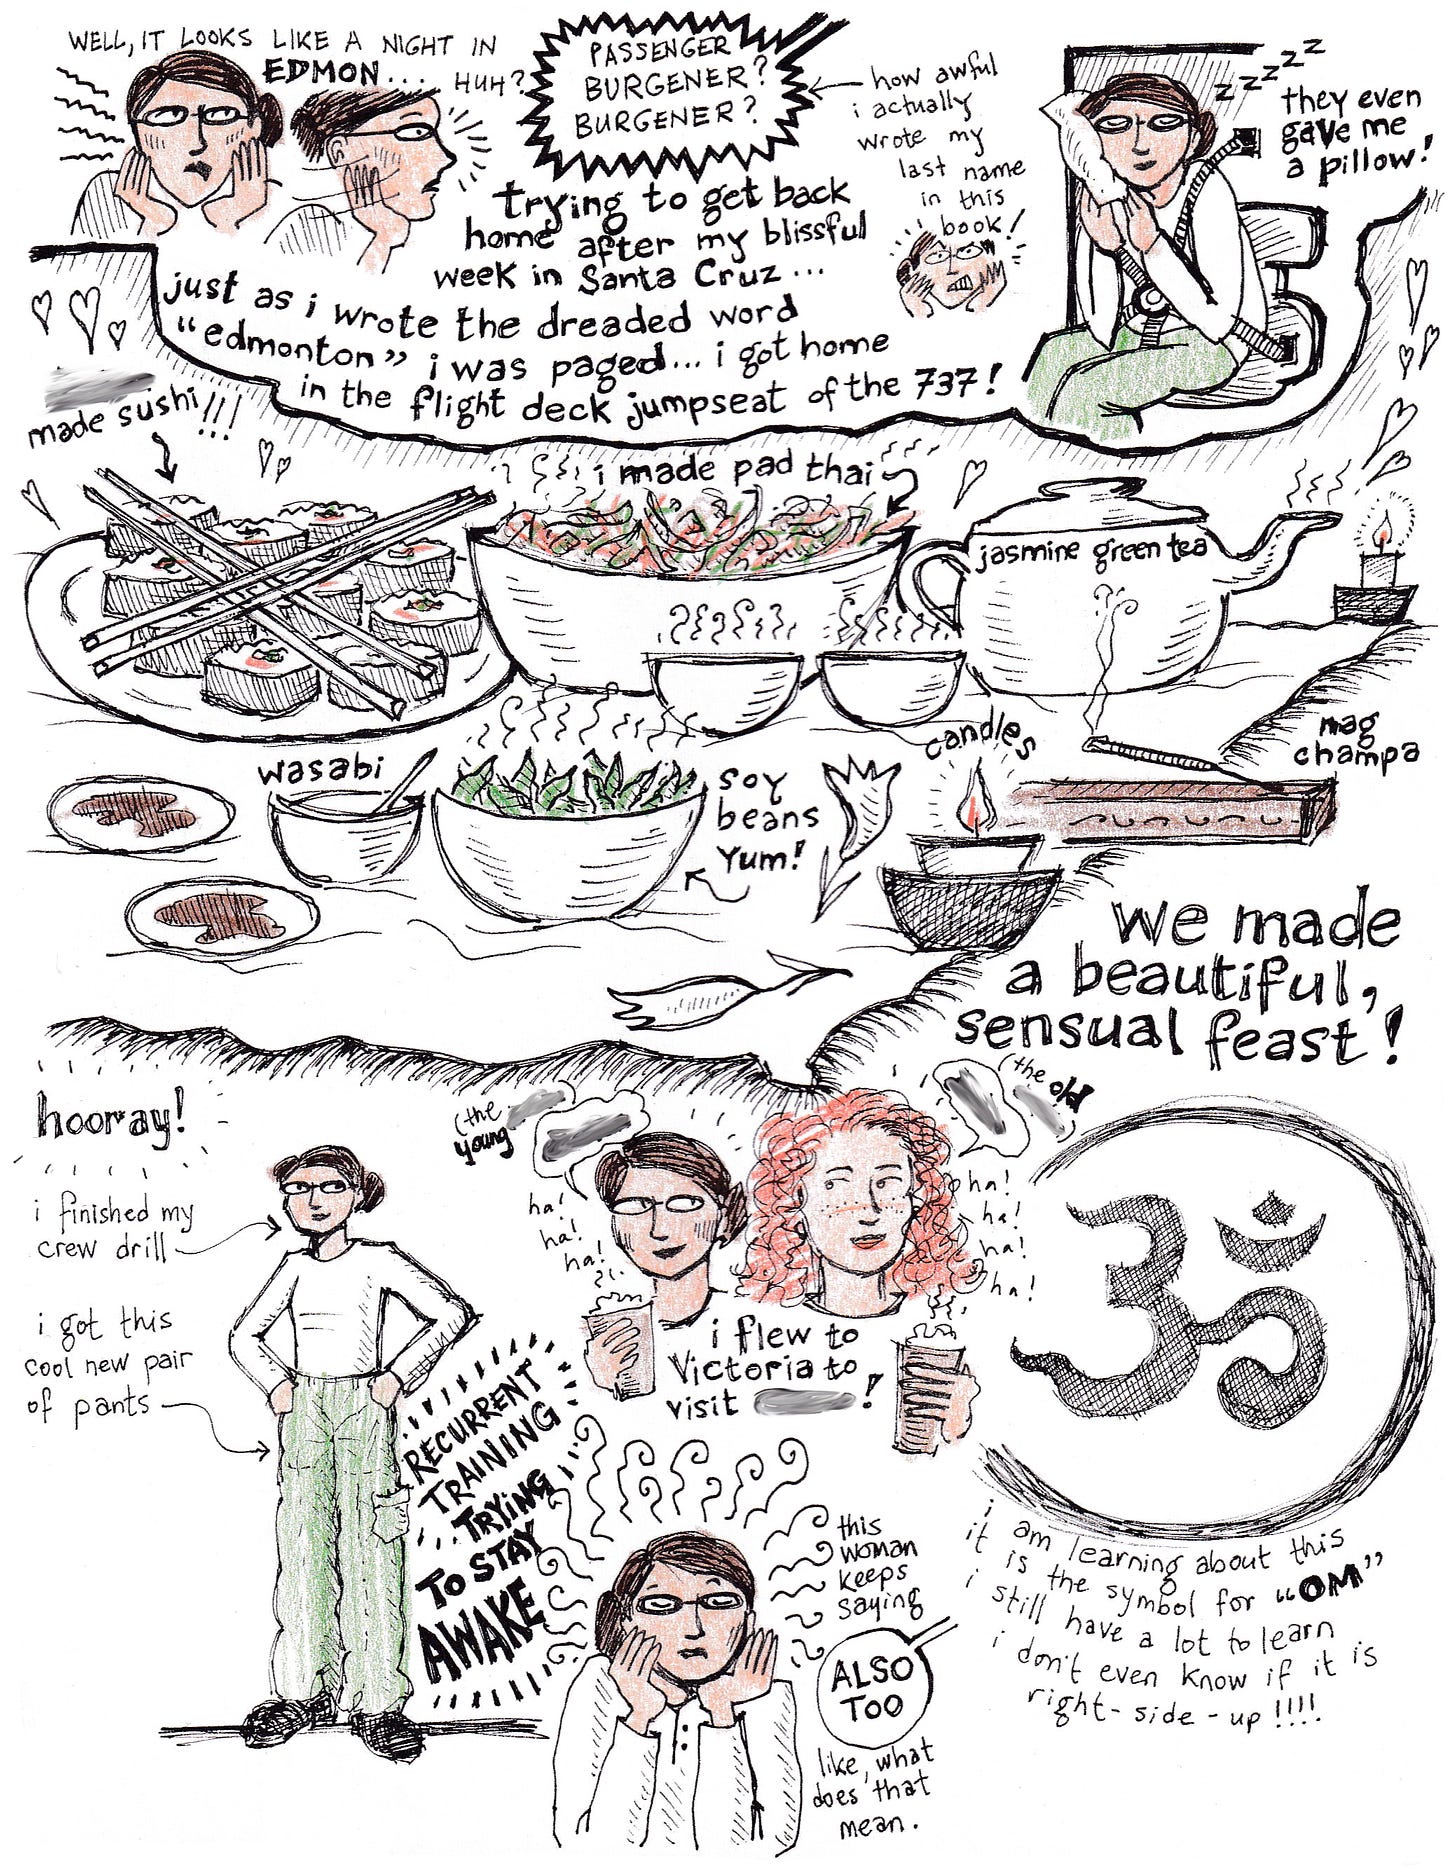 WELL, IT LOOKS LIKE A NIGHT IN
EDMON... HUH?
PASSENGER
BURGENER?
BURGENER?
how awful
i actually
wrote my
last name
in this
book!
zzzzz
they even
gave me
a pillow!
trying to get back
home after my blissful
week in Santa Cruz...
just as i wrote the dreaded word
"edmonton" i was paged... i got home
in the flight deck jumpseat of the 737!
made sushi!!!
i made pad thai
jasmine green tea
wasabi
soy
beans
Yum!
candles
nag
champa
we made
a beautiful,
sensual feast!
hooray!
i finished my
crew drill
i got this
cool new pair
of pants
(the
young
(the old
ha!
ha!
ha!
ha!
ha!
ha!
ha!
ha!
i flew to
Victoria to
visit !
RECURRENT
TRAINING
...TRYING
TO STAY
AWAKE
this
woman
keeps
saying
ALSO
TOO
like, what
does that
mean.
i am learning about this
it is the symbol for "OM"
i still have a lot to learn
i don't even know if it is
right-side-up!!!!